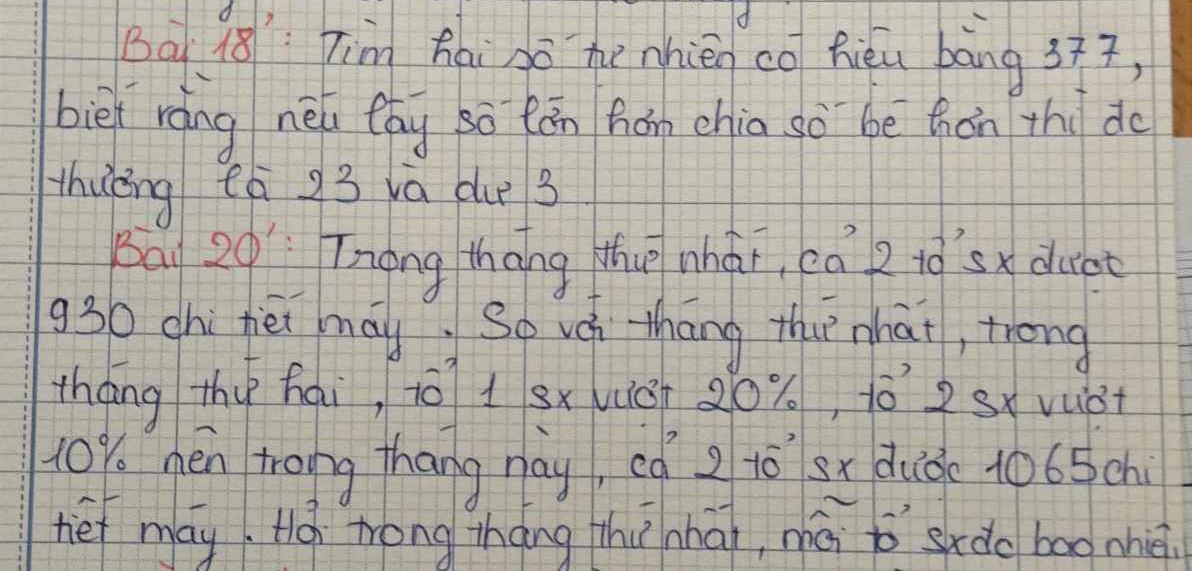 Bài 18': Tìm hai số tự nhiên có hiệu bằng 377,
biết rằng nếu lấy số lớn hơn chia số bé hơn thì dc
thương là 23 và dư 3
Bài 20': Trong tháng thứ nhất, cả 2 tổ sx được
930 chi tiết máy. So với tháng thứ nhất, trong
tháng thứ hai, tổ 1 sx vượt 20%, tổ 2 sx vượt
10% nên trong tháng này, cả 2 tổ sx được 1065 chi
tiết máy. Hỏi trong tháng thứ nhất, mỗi tổ sx dc bao nhiê